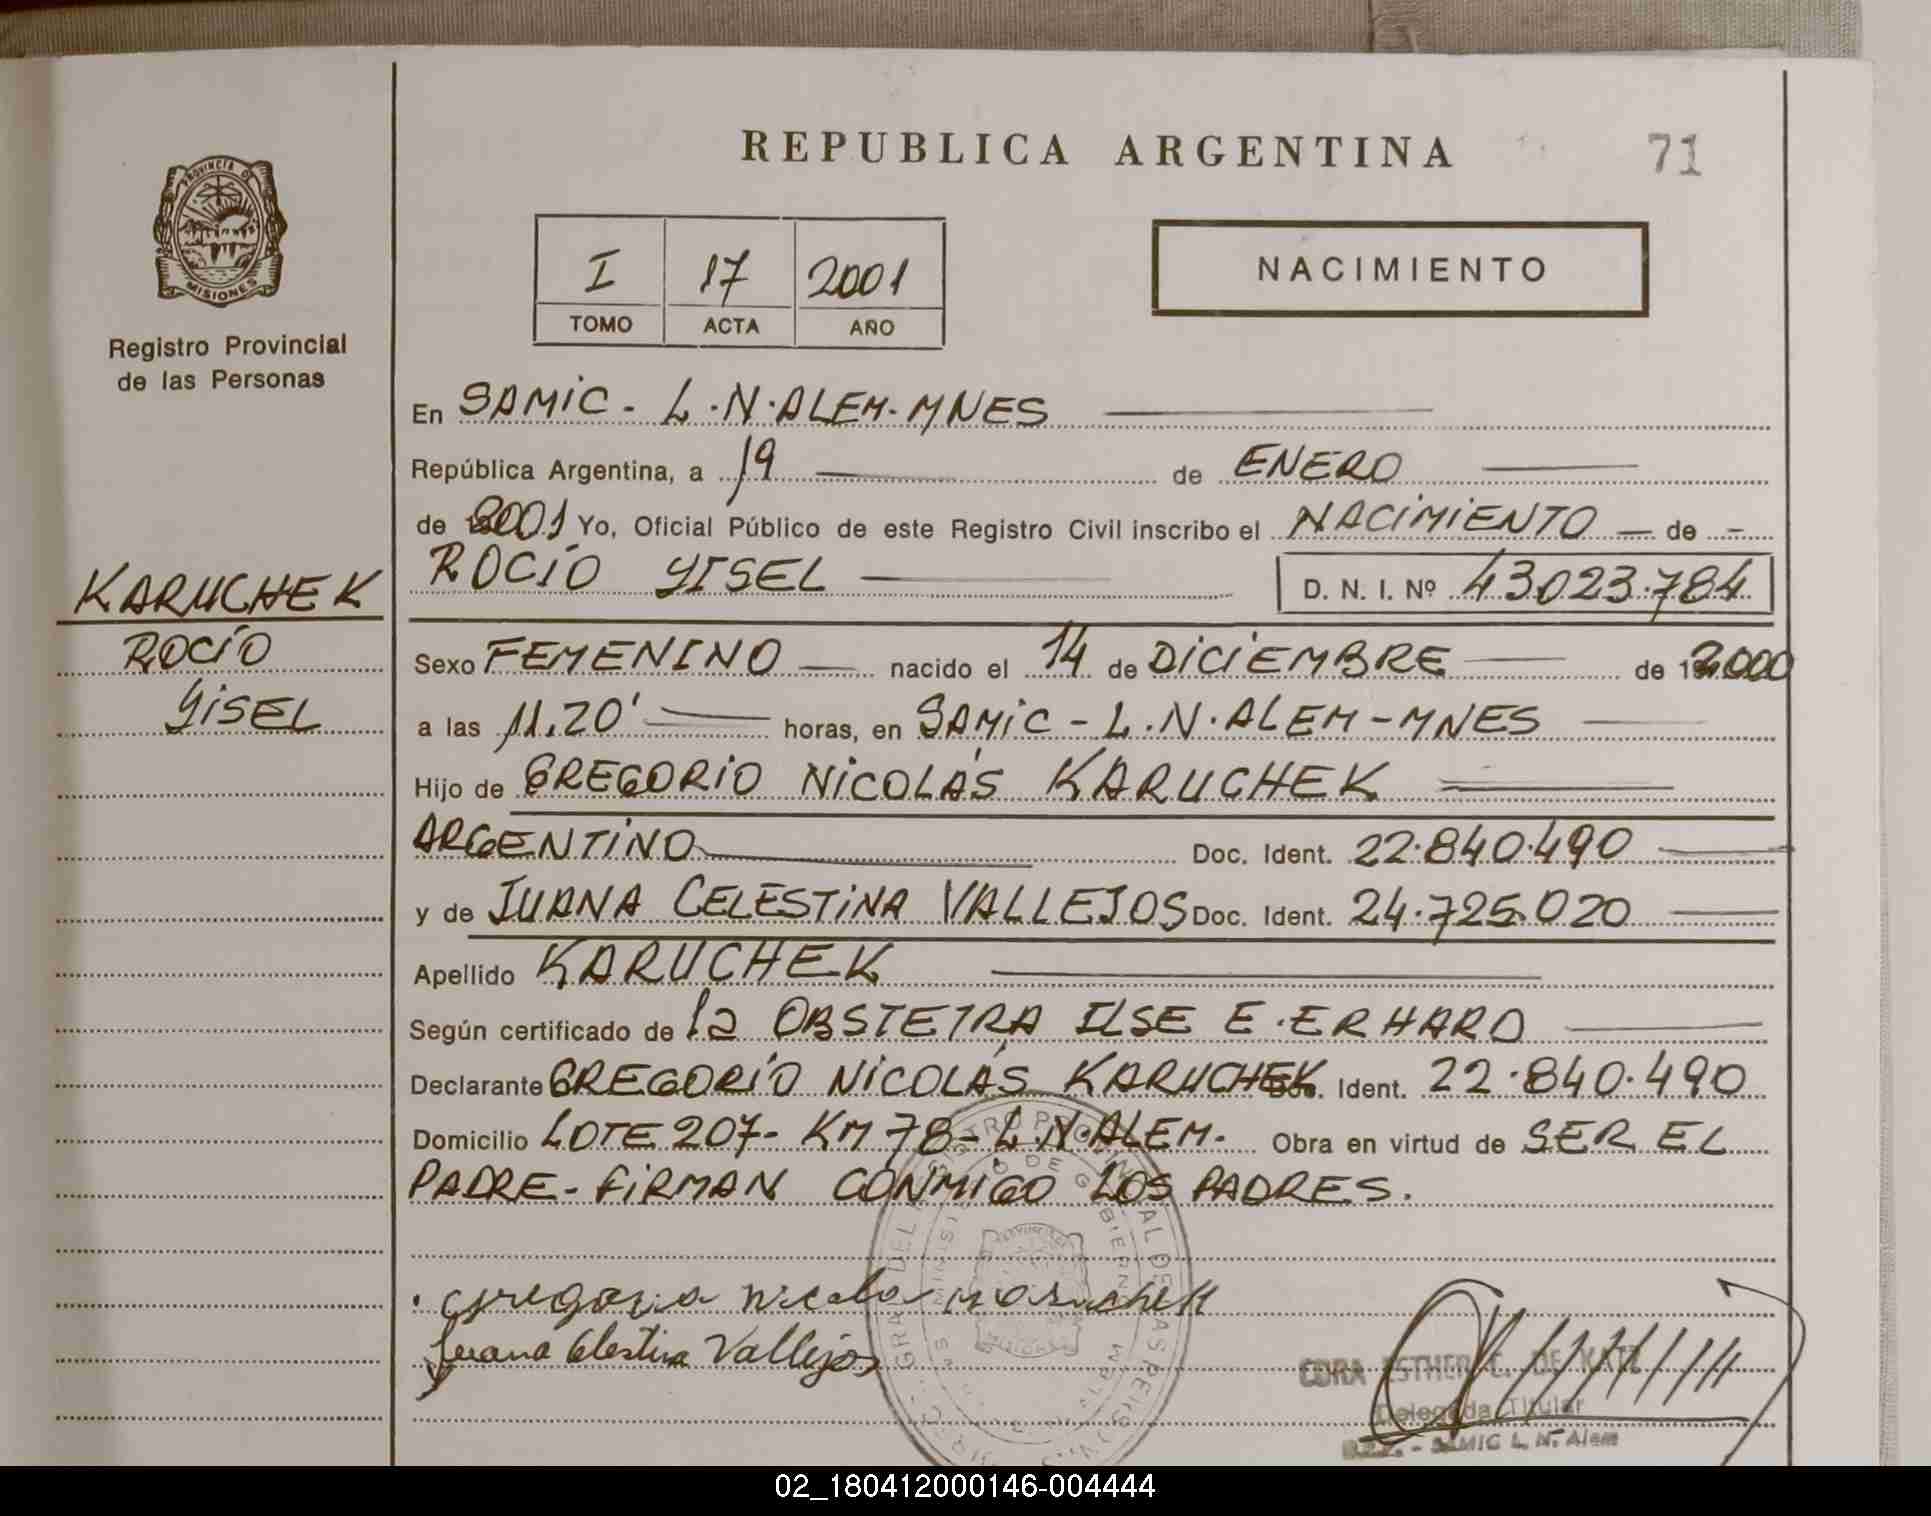 REPUBLICA ARGENTINA
71
PROVINCIA DE
MISIONES
Registro Provincial
de las Personas
I 17 2001
TOMO ACTA AÑO
NACIMIENTO
En SAMIC - L.N.ALEM-MNES
República Argentina, a 19 de ENERO
de 2001 Yo, Oficial Público de este Registro Civil inscribo el NACIMIENTO de
ROCÍO YISEL D. N. I. Nº 43.023.784
KARUCHEK
ROCÍO
YISEL
Sexo FEMENINO nacido el 14 de DICIEMBRE de 2000
a las 11.20' horas, en SAMIC - L.N.ALEM-MNES
Hijo de GREGORIO NICOLÁS KARUCHEK
ARGENTINO Doc. Ident. 22.840.490
y de JUANA CELESTINA VALLEJOS Doc. Ident. 24.725.020
Apellido KARUCHEK
Según certificado de la OBSTETRA ILSE E.ERHARD
Declarante GREGORÍO NICOLÁS KARUCHEK Doc. Ident. 22.840.490
Domicilio LOTE 207- KM 78- L.N.ALEM. Obra en virtud de SER EL
PADRE - FIRMAN CONMIGO LOS PADRES.
Juana Celestina Vallejos
CORA ESTHER C. DE KATZ
Delegada Titular
SAMIC L. N. Alem
02_180412000146-004444